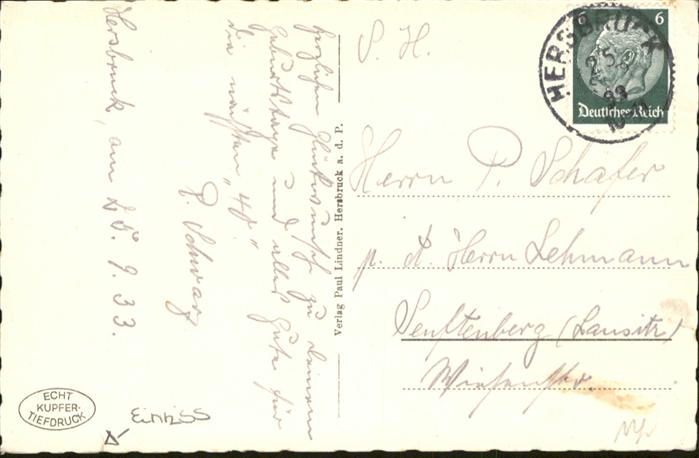 Hersbruck, am 25. 9. 33.
Herzlichen Glückwunsch zu deinem
Geburtstage und alles Gute für
die nächsten "40".
P. Schwarz
Verlag Paul Lindner, Hersbruck a. d. P.
S. H.
HERSBRUCK
25.9
33
6
Deutsches Reich
Herrn P. Schäfer
p. A. Herrn Lehmann
Senftenberg (Lausitz)
ECHT
KUPFER-
TIEFDRUCK